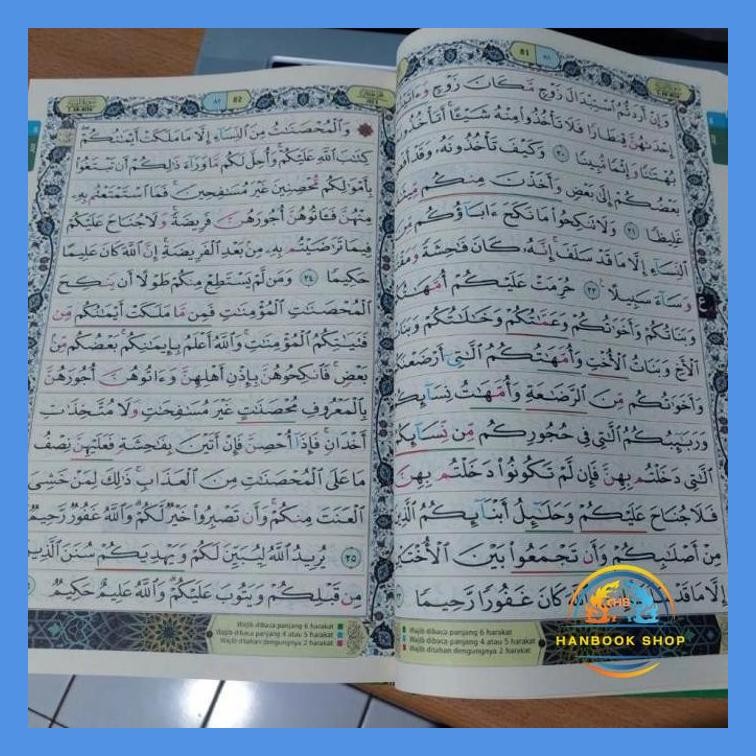 81
وَإِنْ أَرَدتُّمُ ٱسْتِبْدَالَ زَوْجٍ مَّكَانَ زَوْجٍ
إِحْدَىٰهُنَّ قِنطَارًا فَلَا تَأْخُذُوا۟ مِنْهُ شَيْـًٔا أَتَأْخُذُونَهُۥ
بُهْتَـٰنًا وَإِثْمًا مُّبِينًا ٢٠ وَكَيْفَ تَأْخُذُونَهُۥ وَقَدْ
بَعْضُكُمْ إِلَىٰ بَعْضٍ وَأَخَذْنَ مِنكُم
غَلِيظًا ٢١ وَلَا تَنكِحُوا۟ مَا نَكَحَ ءَابَآؤُكُم مِّنَ
ٱلنِّسَآءِ إِلَّا مَا قَدْ سَلَفَ إِنَّهُۥ كَانَ فَـٰحِشَةً
وَسَآءَ سَبِيلًا ٢٢ حُرِّمَتْ عَلَيْكُمْ
وَبَنَاتُكُمْ وَأَخَوَٰتُكُمْ وَعَمَّـٰتُكُمْ وَخَـٰلَـٰتُكُمْ وَبَنَاتُ
ٱلْأَخِ وَبَنَاتُ ٱلْأُخْتِ وَأُمَّهَـٰتُكُمُ ٱلَّـٰتِىٓ أَرْضَعْنَكُمْ
وَأَخَوَٰتُكُم مِّنَ ٱلرَّضَـٰعَةِ وَأُمَّهَـٰتُ نِسَآئِكُمْ
وَرَبَـٰٓئِبُكُمُ ٱلَّـٰتِى فِى حُجُورِكُم مِّن نِّسَآئِكُمُ
ٱلَّـٰتِى دَخَلْتُم بِهِنَّ فَإِن لَّمْ تَكُونُوا۟ دَخَلْتُم بِهِنَّ
فَلَا جُنَاحَ عَلَيْكُمْ وَحَلَـٰٓئِلُ أَبْنَآئِكُمُ ٱلَّذِينَ
مِنْ أَصْلَـٰبِكُمْ وَأَن تَجْمَعُوا۟ بَيْنَ ٱلْأُخْتَيْنِ
إِلَّا مَا قَدْ كَانَ غَفُورًا رَّحِيمًا
Wajib dibaca panjang 6 harakat
Wajib dibaca panjang 4 atau 5 harakat
Wajib ditahan dengungnya 2 harakat
82
وَٱلْمُحْصَنَـٰتُ مِنَ ٱلنِّسَآءِ إِلَّا مَا مَلَكَتْ أَيْمَـٰنُكُمْ
كِتَـٰبَ ٱللَّهِ عَلَيْكُمْ وَأُحِلَّ لَكُم مَّا وَرَآءَ ذَٰلِكُمْ أَن تَبْتَغُوا۟
بِأَمْوَٰلِكُم مُّحْصِنِينَ غَيْرَ مُسَـٰفِحِينَ فَمَا ٱسْتَمْتَعْتُم بِهِۦ
مِنْهُنَّ فَـَٔاتُوهُنَّ أُجُورَهُنَّ فَرِيضَةً وَلَا جُنَاحَ عَلَيْكُمْ
فِيمَا تَرَٰضَيْتُم بِهِۦ مِنۢ بَعْدِ ٱلْفَرِيضَةِ إِنَّ ٱللَّهَ كَانَ عَلِيمًا
حَكِيمًا ٢٤ وَمَن لَّمْ يَسْتَطِعْ مِنكُمْ طَوْلًا أَن يَنكِحَ
ٱلْمُحْصَنَـٰتِ ٱلْمُؤْمِنَـٰتِ فَمِن مَّا مَلَكَتْ أَيْمَـٰنُكُم مِّن
فَتَيَـٰتِكُمُ ٱلْمُؤْمِنَـٰتِ وَٱللَّهُ أَعْلَمُ بِإِيمَـٰنِكُم بَعْضُكُم مِّنۢ
بَعْضٍ فَٱنكِحُوهُنَّ بِإِذْنِ أَهْلِهِنَّ وَءَاتُوهُنَّ أُجُورَهُنَّ
بِٱلْمَعْرُوفِ مُحْصَنَـٰتٍ غَيْرَ مُسَـٰفِحَـٰتٍ وَلَا مُتَّخِذَٰتِ
أَخْدَانٍ فَإِذَآ أُحْصِنَّ فَإِنْ أَتَيْنَ بِفَـٰحِشَةٍ فَعَلَيْهِنَّ نِصْفُ
مَا عَلَى ٱلْمُحْصَنَـٰتِ مِنَ ٱلْعَذَابِ ذَٰلِكَ لِمَنْ خَشِىَ
ٱلْعَنَتَ مِنكُمْ وَأَن تَصْبِرُوا۟ خَيْرٌ لَّكُمْ وَٱللَّهُ غَفُورٌ رَّحِيمٌ
٢٥ يُرِيدُ ٱللَّهُ لِيُبَيِّنَ لَكُمْ وَيَهْدِيَكُمْ سُنَنَ ٱلَّذِينَ
مِن قَبْلِكُمْ وَيَتُوبَ عَلَيْكُمْ وَٱللَّهُ عَلِيمٌ حَكِيمٌ
Wajib dibaca panjang 6 harakat
Wajib dibaca panjang 4 atau 5 harakat
Wajib ditahan dengungnya 2 harakat
HBS
HANBOOK SHOP